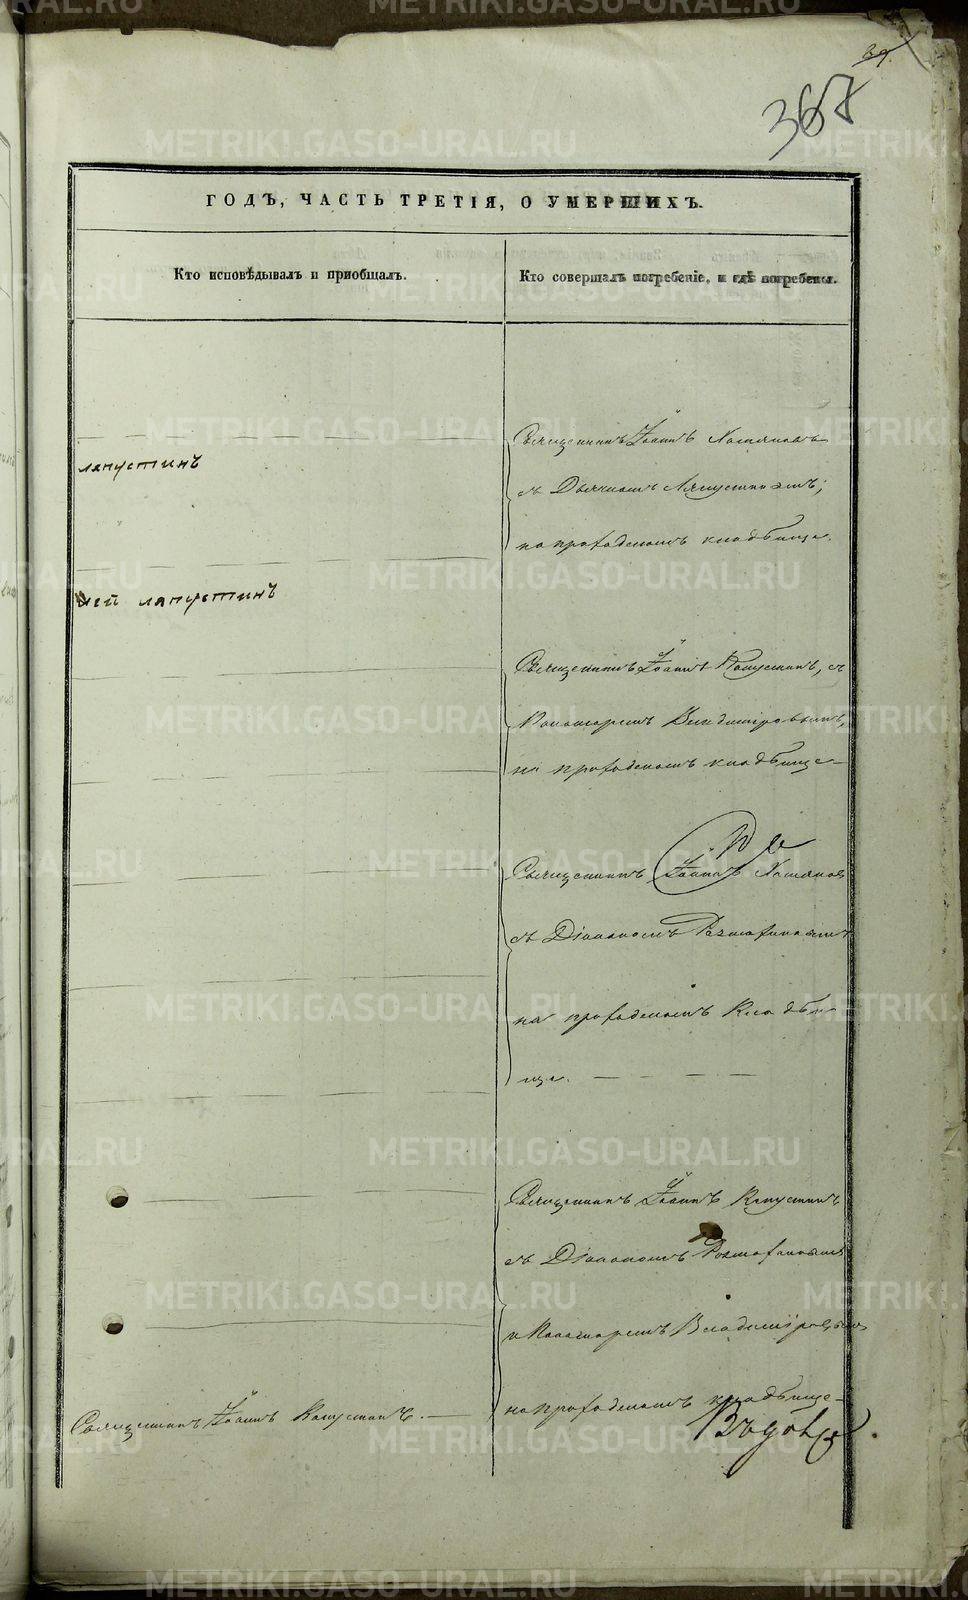 39.
367
ГОДЪ, ЧАСТЬ ТРЕТІЯ, О УМЕРШИХЪ.
Кто исповѣдывалъ и приобщалъ.
Кто совершалъ погребеніе, и гдѣ погребены.
Священникъ Іоаннъ
ляпустинъ
съ Дьячкомъ Ляпустинымъ;
на приходскомъ кладбище.
ней ляпустинъ
Священникъ Іоаннъ Капустинъ, съ
Пономаремъ Владиміровымъ,
на приходскомъ кладбище
Священникъ Іоаннъ
съ Діакономъ
на приходскомъ кладби
ще.
Священникъ Іоаннъ Капустинъ
съ Діакономъ
и Пономаремъ Владиміровымъ
на приходскомъ кладбище
Священникъ Іоаннъ Капустинъ.
METRIKI.GASO-URAL.RU